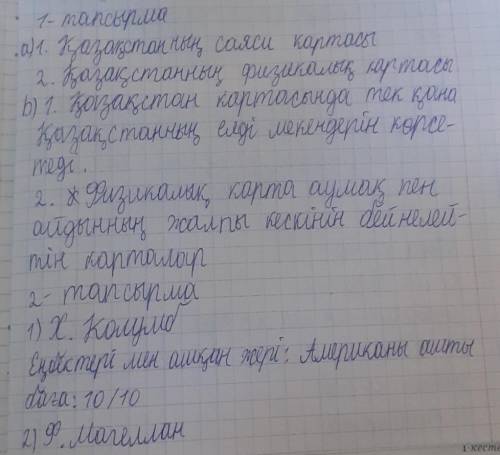 1- тапсырма
а)1. Қазақстанның саяси картасы
2. Қазақстанның физикалық картасы
b) 1. Қазақстан картасында тек қана
Қазақстанның елді мекендерін көрсе-
теді.
2. Физикалық карта аумақ пен
айдынның жалпы кескінін бейнелей-
тін карталар
2- тапсырма
1) Х. Колумб
Еңбектері мен ашқан жері: Американы ашты
баға: 10/10
2) Ф. Магеллан